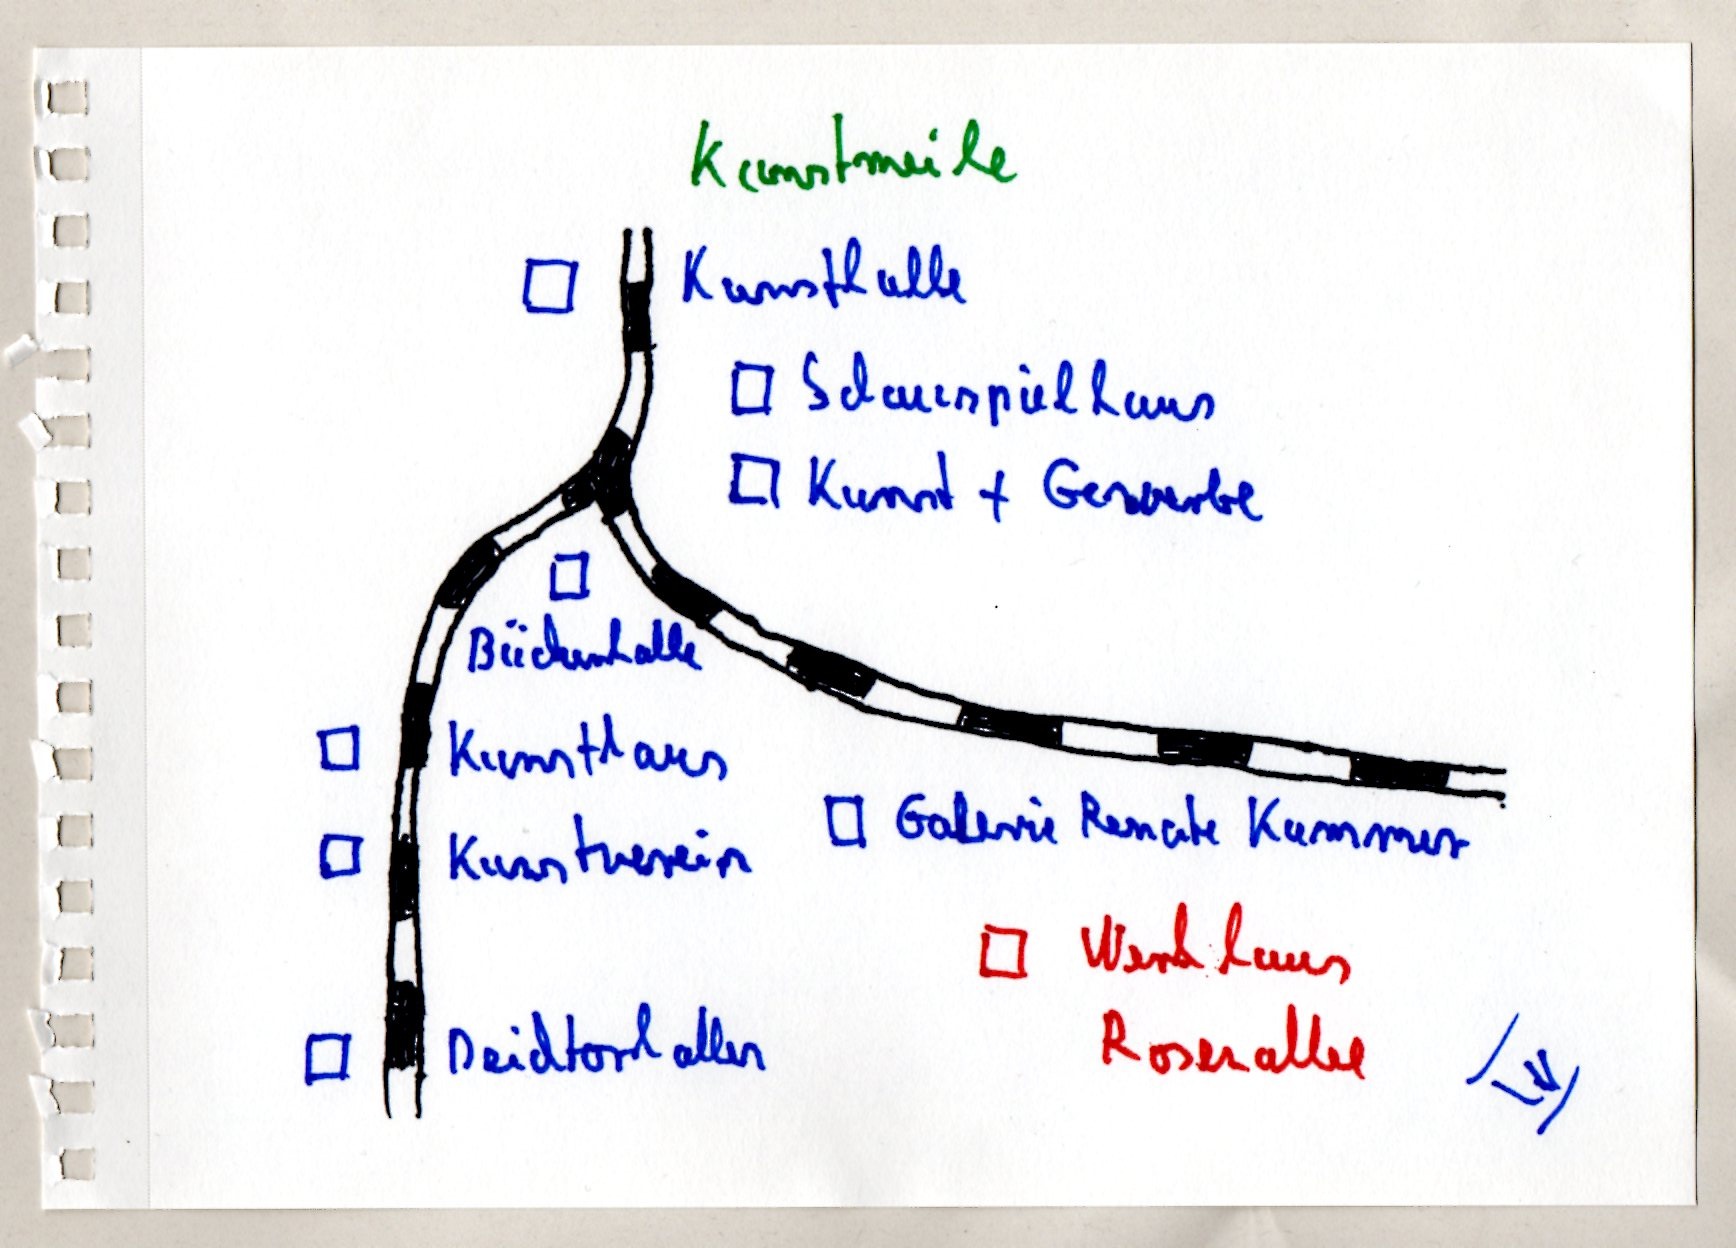 Kunstmeile
Kunsthalle
Schauspielhaus
Kunst + Gewerbe
Bücherhalle
Kunsthaus
Kunstverein
Galerie Renate Kammer
Werkhaus
Rosenallee
Deichtorhallen